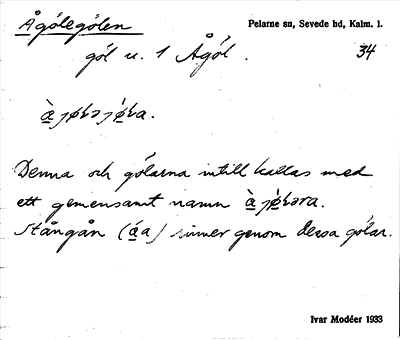 Ågölegölen
Pelarne sn, Sevede hd, Kalm. l.
göl u. 1 Ågöl.
34
Denna och gölarna intill kallas med
ett gemensamt namn
Stångån (áa) rinner genom dessa gölar.
Ivar Modéer 1933